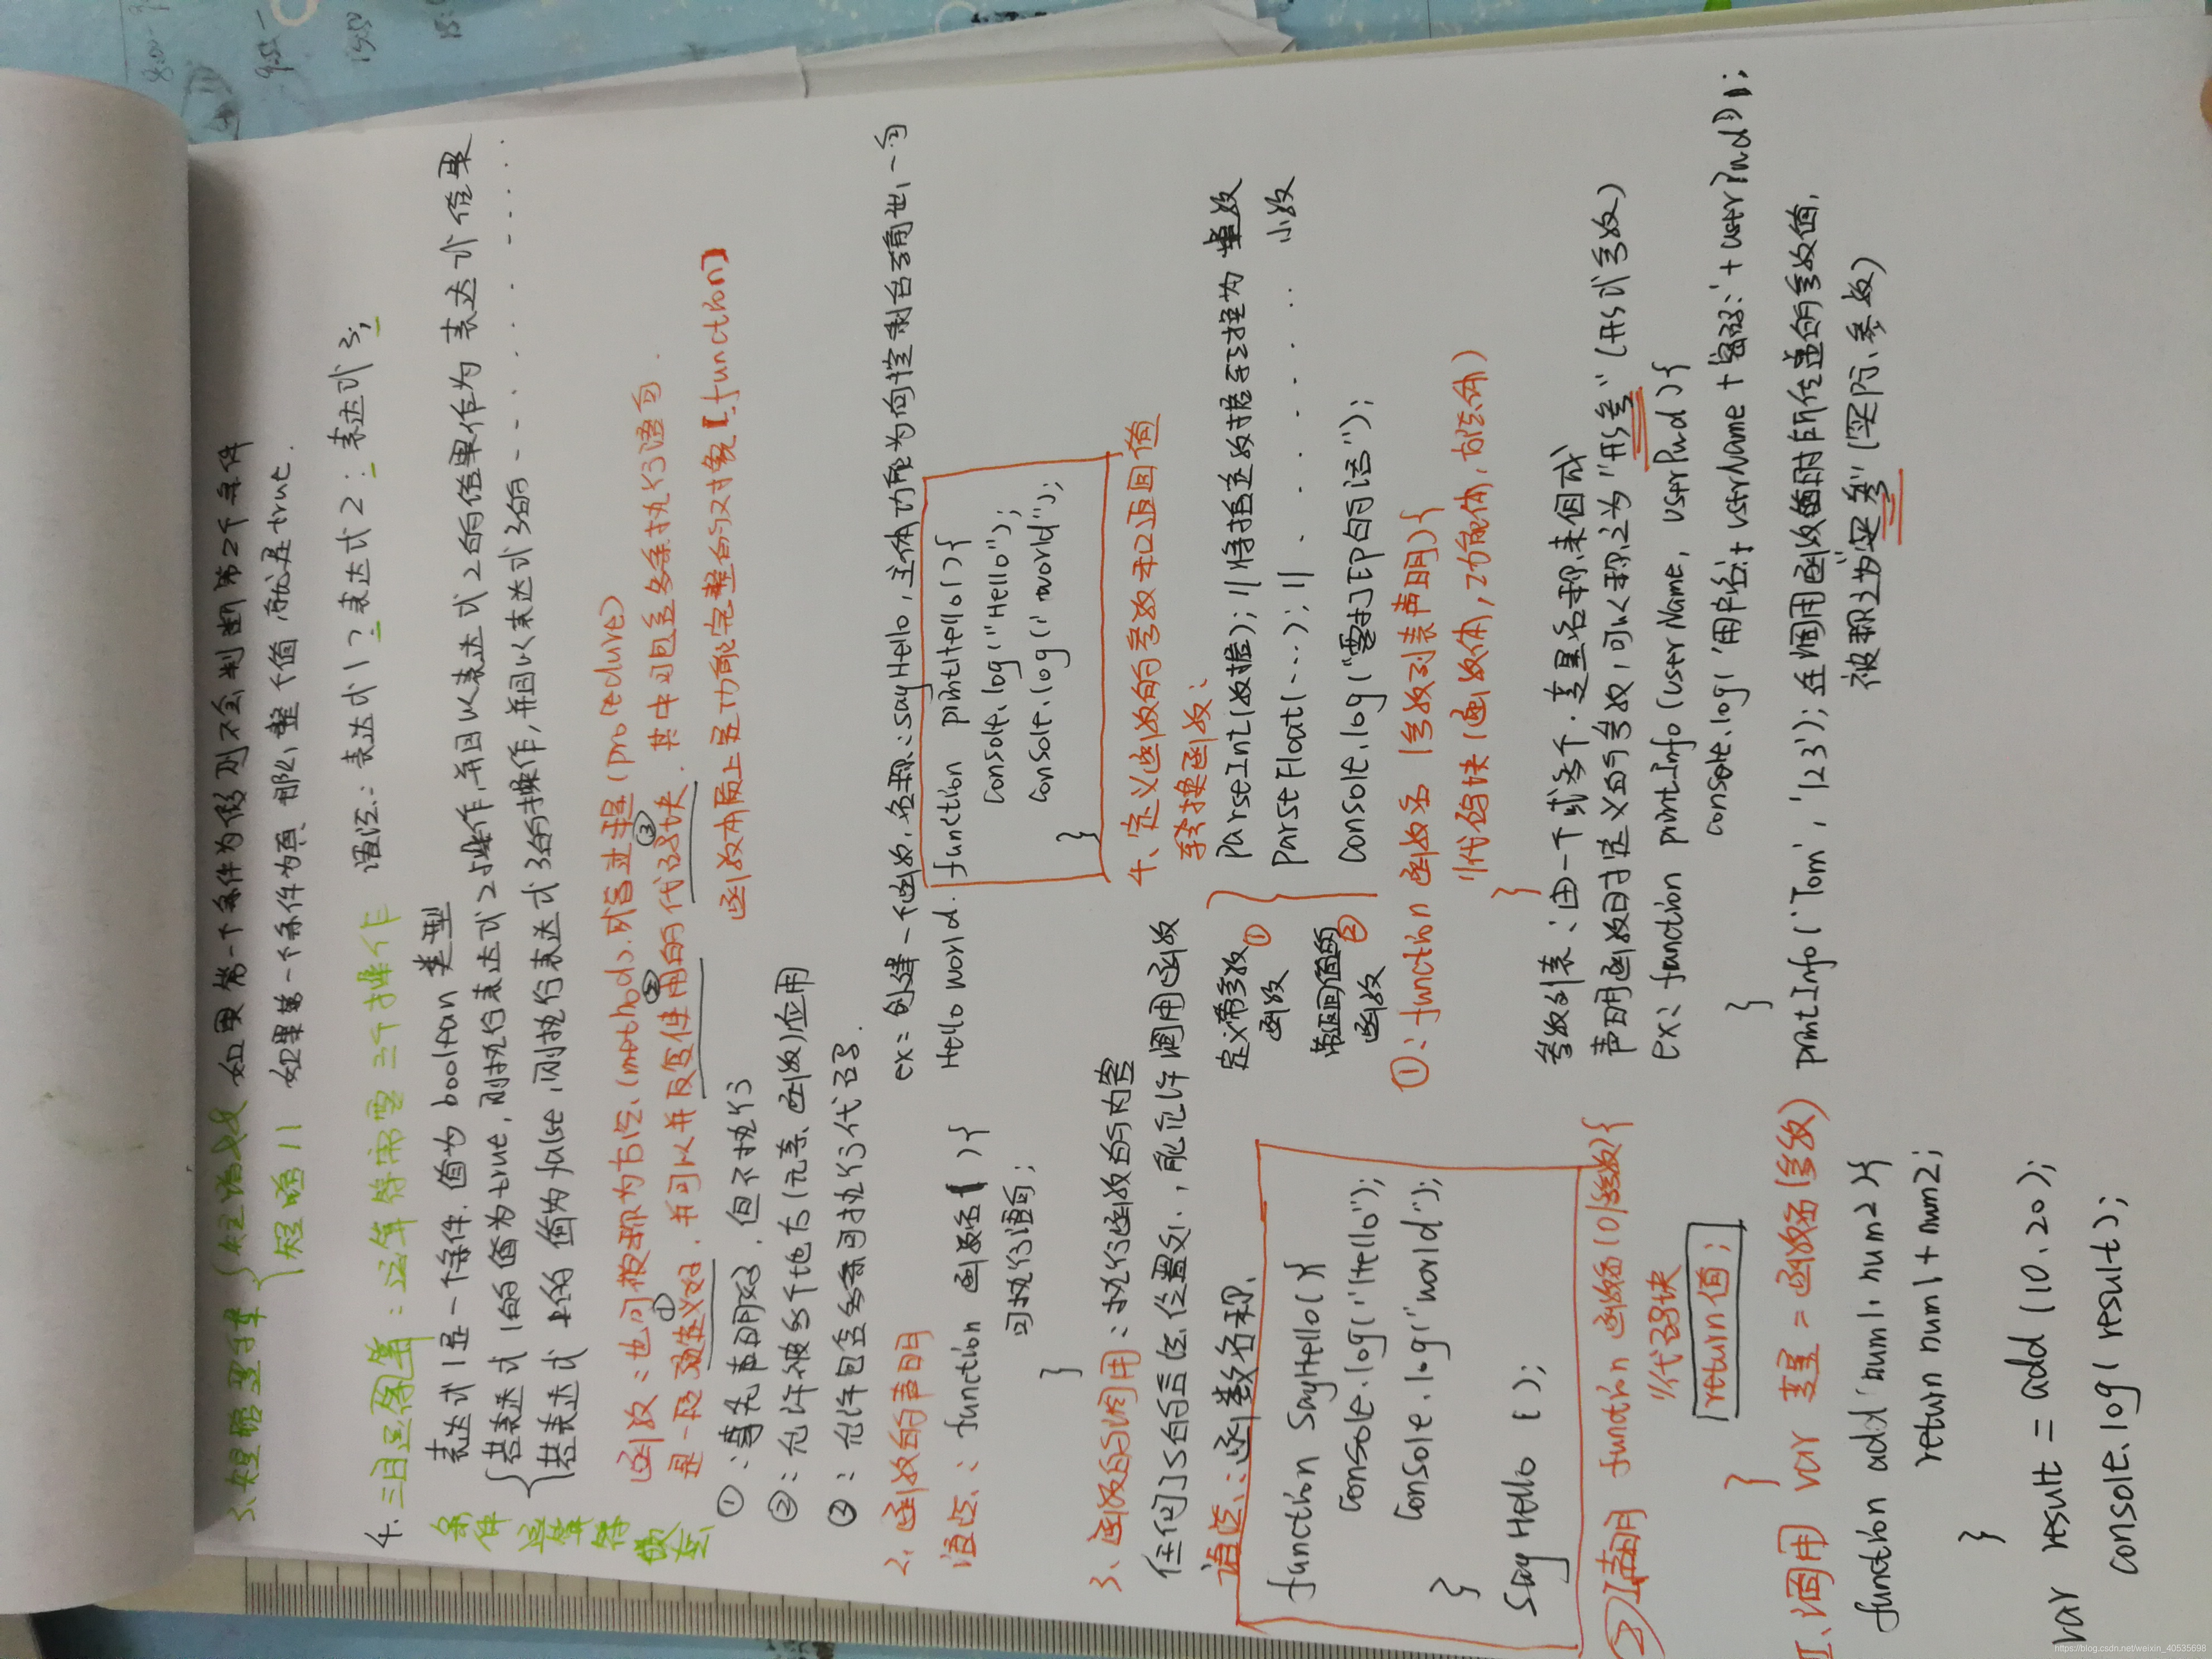 3、短路逻辑 { 短路&& 如果第一个条件为假 则不会判断第2个条件
{ 短路 || 如果第一个条件为真, 那么, 整个值, 就是true.
4. 三目运算: 运算符需要三个操作 语法: 表达式1 ? 表达式2 : 表达式3;
表达式1是一个条件, 值为 boolean 类型
若表达式1的值为true, 则执行表达式2操作, 并且以表达式2的结果作为 表达式 结果
若表达式1的值为false, 则执行表达式3的操作, 并且以表达式3的 - - . . . . . .
条件
运算符
嵌套
函数: 也可被称为方法(method), 或者过程(procedure)
是一段预定义好, 并可以并反复使用的代码块, 其中可包含多条执行语句.
① ② ③
函数本质上是功能完整的对象【function】
①: 事先声明好, 但不执行
②: 允许被多个地方(元素、函数)应用
③: 允许包含多条可执行代码.
2、函数的声明
语法: function 函数名( ){
可执行语句;
}
ex: 创建一个函数, 名称: sayHello, 主体功能为向控制台输出一句
Hello world.
function printHello(){
console.log("Hello");
console.log("world");
}
3、函数的调用: 执行函数的内容
任何JS的合法位置处, 都允许调用函数
语法: 函数名称.
function SayHello(){
console.log("Hello");
console.log("world");
}
SayHello ();
4、定义函数的参数和返回值
转换函数:
定义带参数函数 ①
parseInt(数据); || 将指定数据转换为 整数
parseFloat(...); || . . . . . . . 小数
带返回值的函数 ②
console.log("要打印的话");
①: function 函数名 (参数列表声明){
//代码块(函数体, 功能体, 方法体)
}
参数列表: 由一个或多个. 变量名称来组成
声明函数时定义的参数, 可以称之为"形参" (形式参数)
ex: function printInfo(userName, userPwd){
console.log('用户名:'+ userName + '密码:' + userPwd);
}
printInfo('Tom', '123'); 在调用函数时所传递的参数值,
被称之为"实参" (实际参数)
② I、声明 function 函数名(0/参数){
//代码块
return 值;
}
II、调用 var 变量 = 函数名(参数)
function add(num1, num2){
return num1 + num2;
}
var result = add (10.20);
console.log( result);
https://blog.csdn.net/weixin_40535698